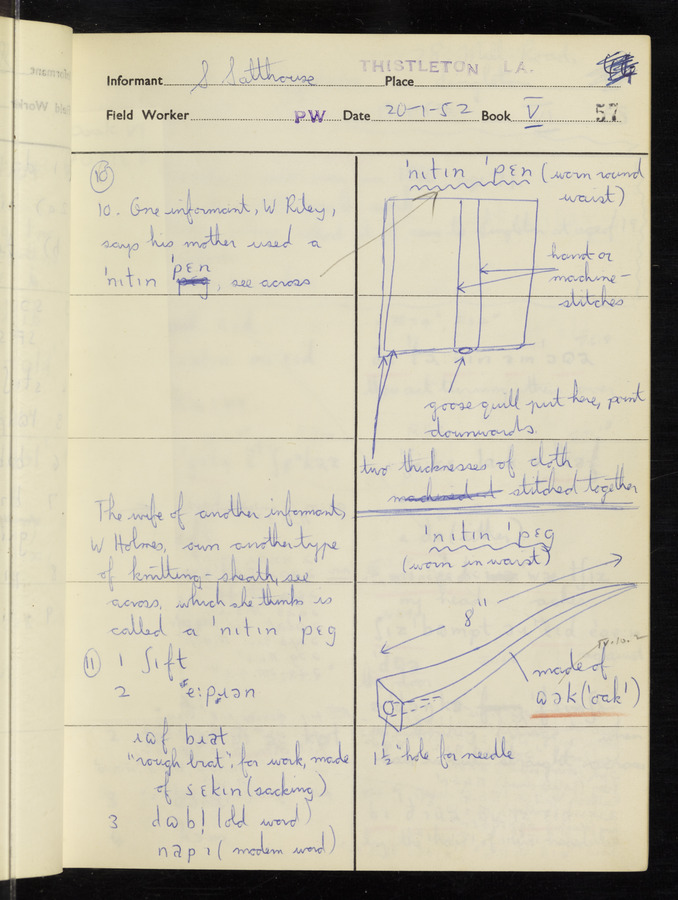 THISTLETON LA.
Informant S Salthouse Place
Field Worker PW Date 20-1-52 Book V 57
10
10. One informant, W Riley,
says his mother used a
ˈnɪtɪn ˈpɛn, see across
The wife of another informant,
W Holmes, own another type
of knitting-sheath, see
across, which she thinks is
called a ˈnɪtɪn ˈpɛg
11 1 ʃɪft
2
ɹɷf bɹat
"rough brat", for work, made
of sɛkɪn (sacking)
3 (old word)
napɪ (modern word)
ˈnɪtɪn ˈpɛn (worn round
waist)
hand or
machine-
stitches
goose quill put here, point
downwards
two thicknesses of cloth
stitched together
ˈnɪtɪn ˈpɛg
(worn in waist)
8"
IV.10.2
made of
ɷək ('oak')
1½" hole for needle